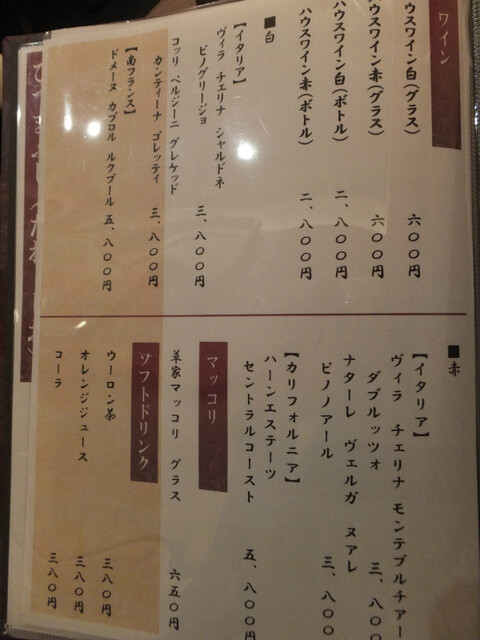 ワイン
ハウスワイン白(グラス) 六〇〇円
ハウスワイン赤(グラス) 六〇〇円
ハウスワイン白(ボトル) 二、八〇〇円
ハウスワイン赤(ボトル) 二、八〇〇円
■白
【イタリア】
ヴィラ チェリナ シャルドネ
ピノグリージョ 三、八〇〇円
コッリ ペルジーニ グレケッド
カンティーナ ゴレッティ 三、八〇〇円
【南フランス】
ドメーヌ カブロル ルクプール 五、八〇〇円
■赤
【イタリア】
ヴィラ チェリナ モンテプルチアー
ダブルッツォ 三、八〇
ナターレ ヴェルガ ヌアレ
ピノノアール 三、八〇〇
【カリフォルニア】
ハーンエステーツ
セントラルコースト 五、八〇〇円
マッコリ
草家マッコリ グラス 六五〇円
ソフトドリンク
ウーロン茶 三八〇円
オレンジジュース 三八〇円
コーラ 三八〇円